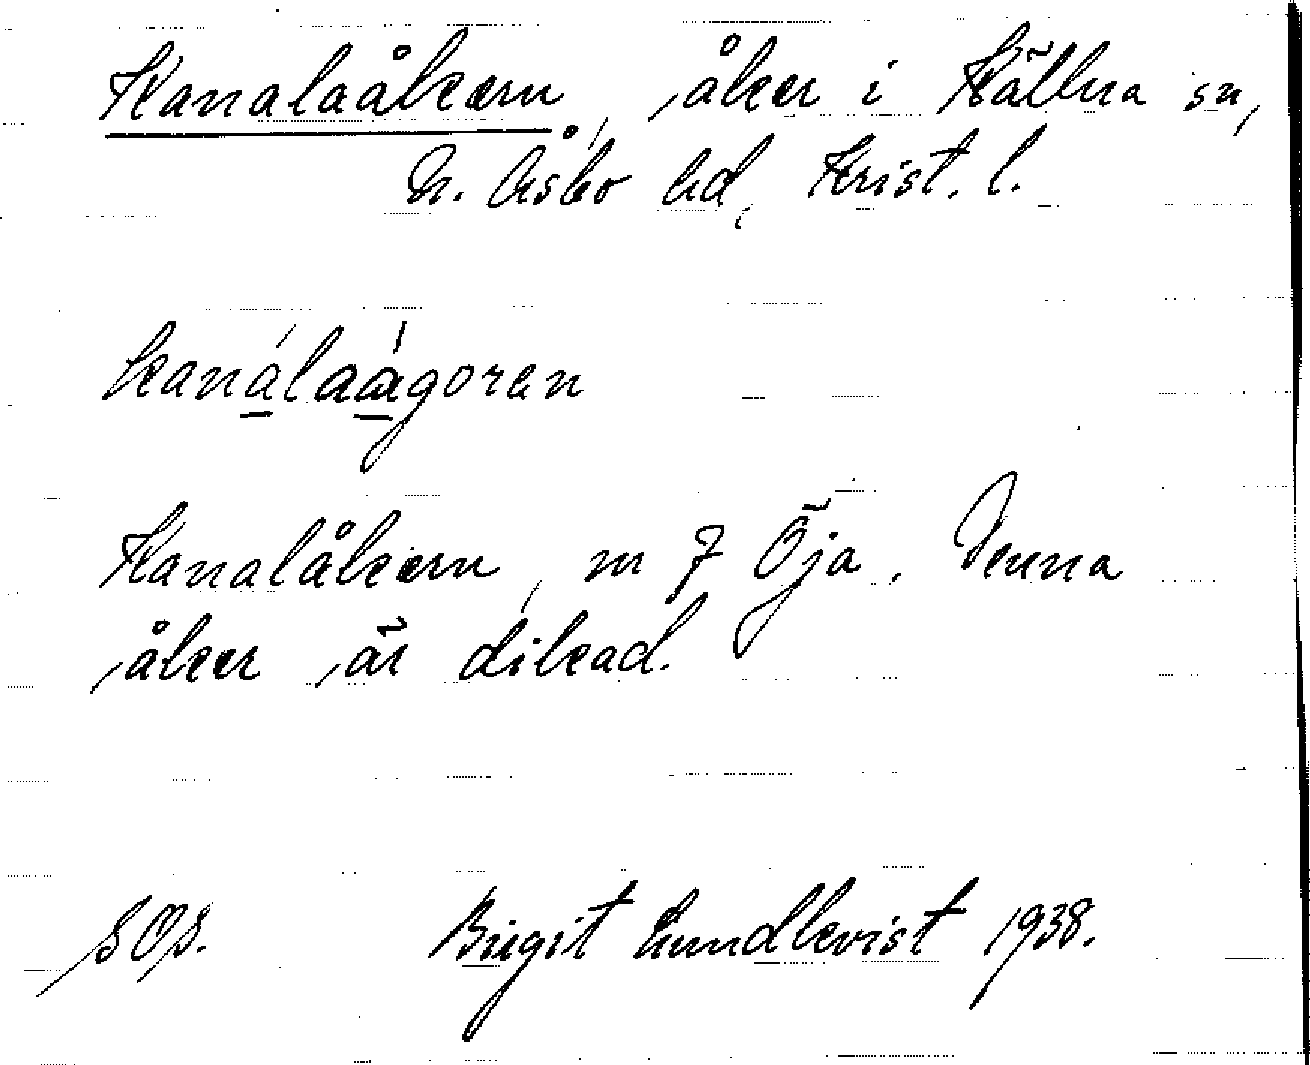 Kanalaåkern, åker i Källna sn,
N. Åsbo hd, Krist. l.
kanálaágoren
Kanalåkern, m 7 Öja. Denna
åker är dikad.
SOS. Birgit Lundkvist 1938.